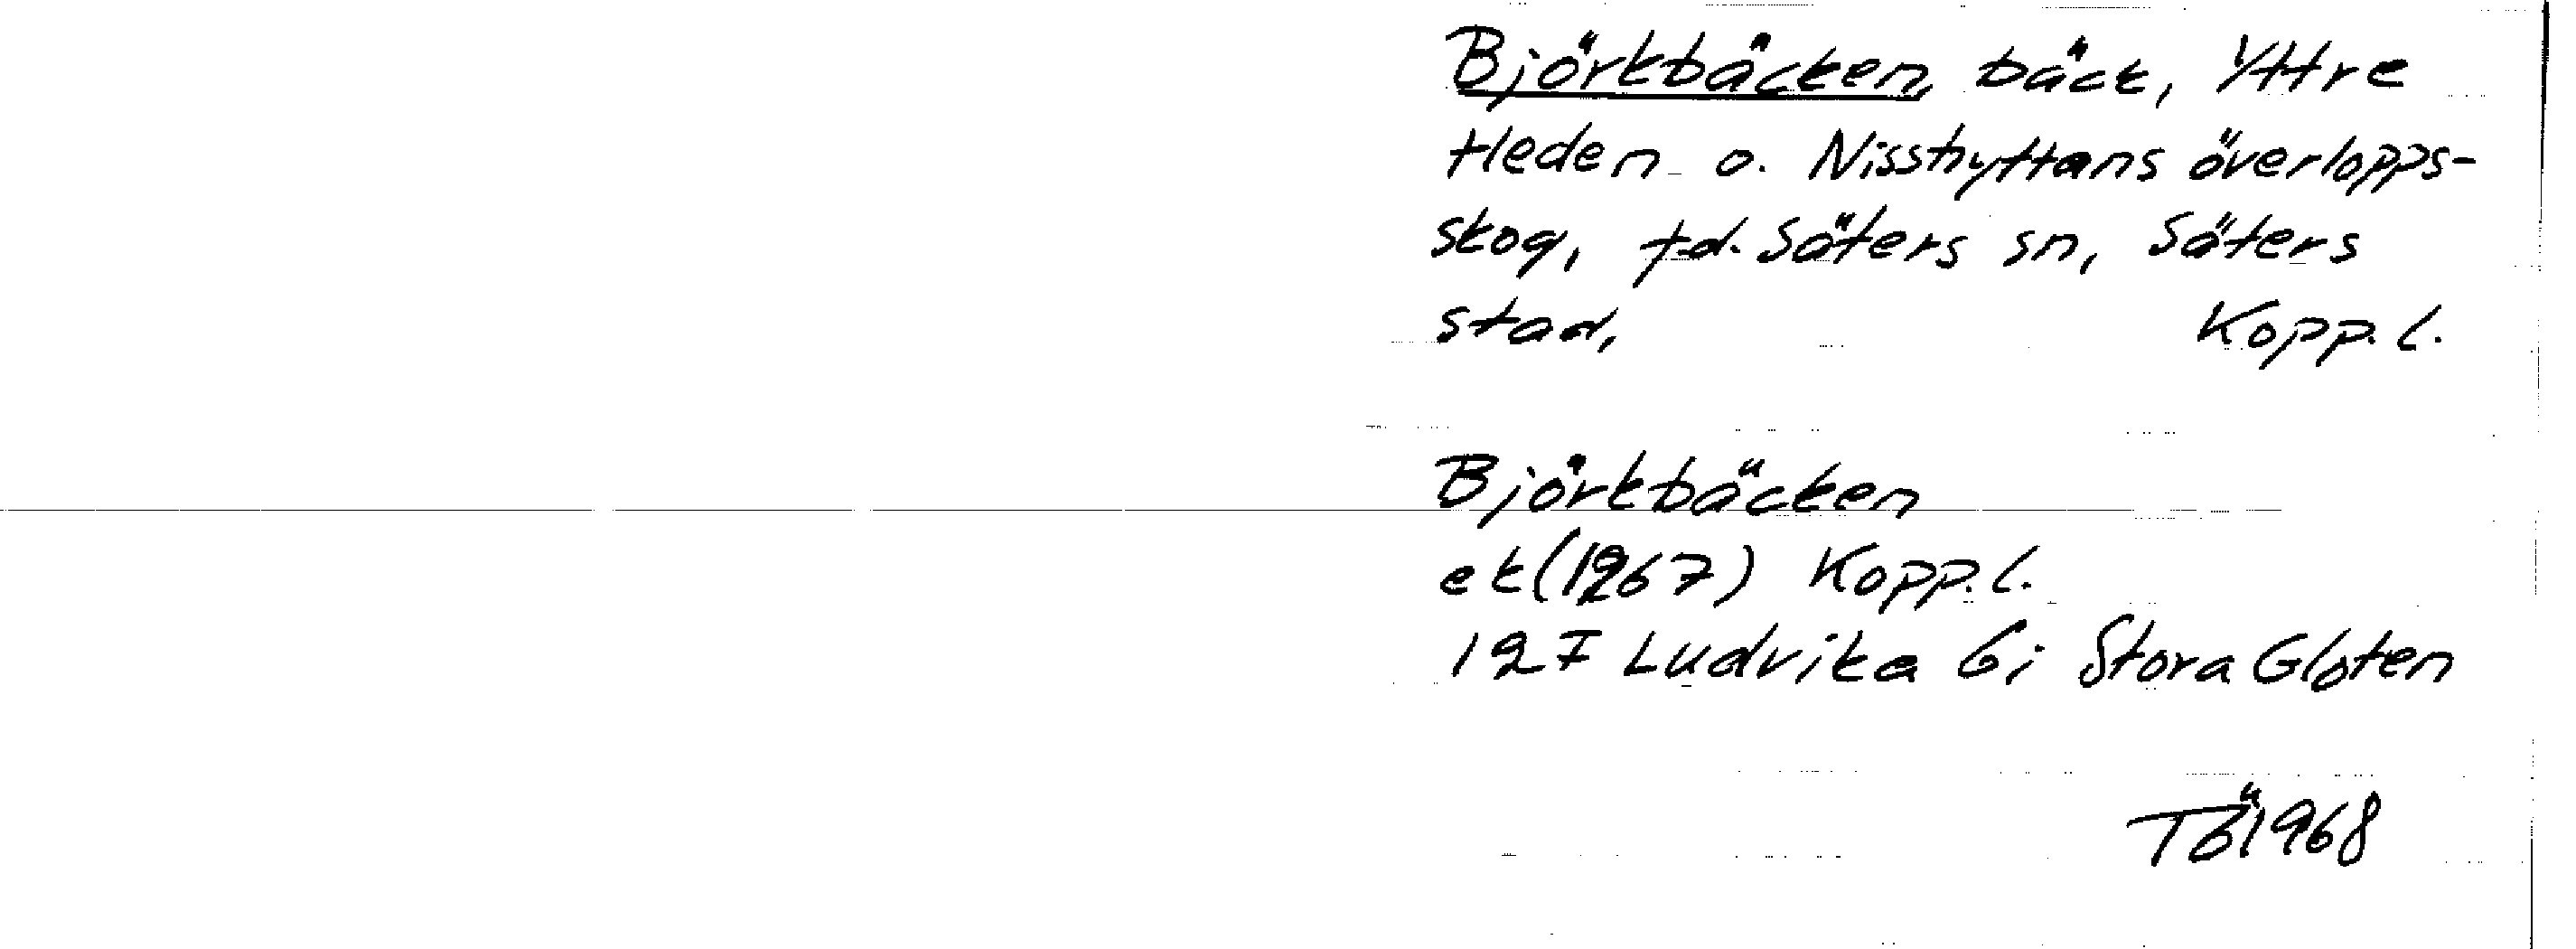 Björkbäcken, bäck, Yttre
Heden o. Nisshyttans överlopps-
skog, f.d. Säters sn, Säters
stad, Kopp. l.
Björkbäcken
ek (1967) Kopp. l.
12F Ludvika 6i Stora Gloten
TÖ 1968